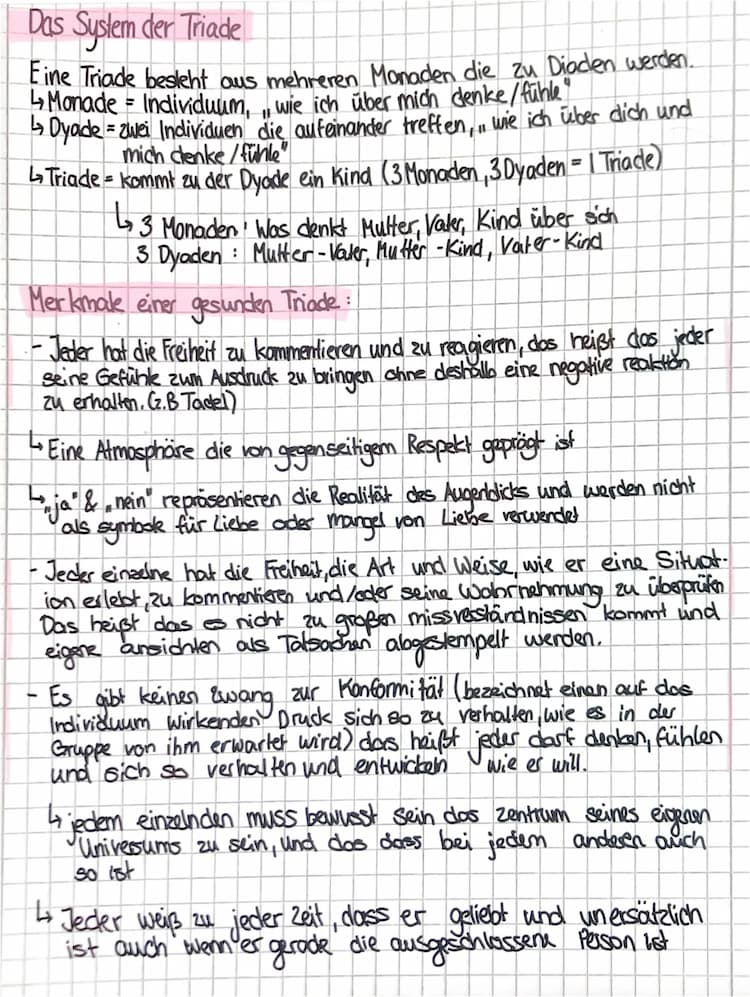 Das System der Triade
Eine Triade besteht aus mehreren Monaden die zu Diaden werden.
↳ Monade = Individuum, „wie ich über mich denke/fühle"
↳ Dyade = zwei Individuen die aufeinander treffen, „wie ich über dich und
mich denke/fühle"
↳ Triade = kommt zu der Dyade ein Kind (3 Monaden, 3 Dyaden = 1 Triade)
↳ 3 Monaden: Was denkt Mutter, Vater, Kind über sich
3 Dyaden: Mutter-Vater, Mutter-Kind, Vater-Kind
Merkmale einer gesunden Triade:
- Jeder hat die Freiheit zu kommentieren und zu reagieren, das heißt das jeder
seine Gefühle zum Ausdruck zu bringen ohne deshalb eine negative reaktion
zu erhalten. (z.B Tadel)
↳ Eine Atmosphäre die von gegenseitigem Respekt geprägt ist
↳ „ja" & „nein" repräsentieren die Realität des Augenblicks und werden nicht
als symbole für Liebe oder mangel von Liebe verwendet
- Jeder einzelne hat die Freiheit, die Art und Weise, wie er eine Situat-
ion erlebt, zu kommentieren und/oder seine Wahrnehmung zu überprüfen
Das heißt das es nicht zu großen missverständnissen kommt und
eigene ansichten als Tatsachen abgestempelt werden.
- Es gibt keinen Zwang zur Konformität (bezeichnet einen auf das
Individuum wirkenden Druck sich so zu verhalten, wie es in der
Gruppe von ihm erwartet wird) das heißt jeder darf denken, fühlen
und sich so verhalten und entwickeln wie er will.
↳ jedem einzelnden muss bewusst sein das zentrum seines eigenen
Universums zu sein, und das dass bei jedem anderen auch
so ist
↳ Jeder weiß zu jeder Zeit, dass er geliebt und unersätzlich
ist auch wenn er gerade die ausgeschlossene Person ist